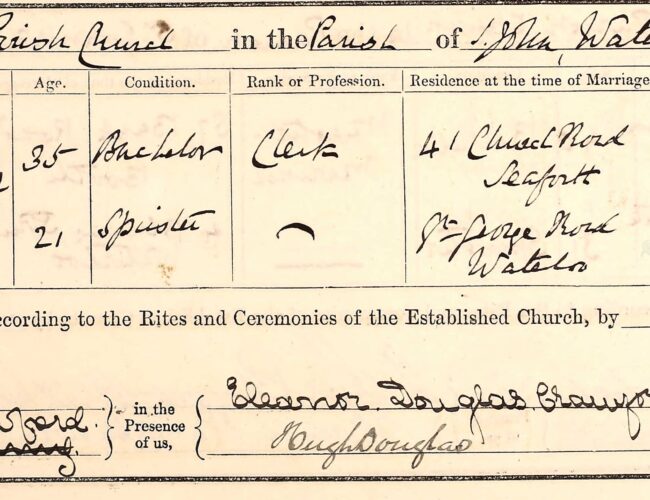 arish Church in the Parish of S. John, Wate
Age. Condition. Rank or Profession. Residence at the time of Marriage
35 Bachelor Clerk 41 Church Road
Seaforth
21 Spinster Gt George Road
Waterloo
ccording to the Rites and Ceremonies of the Established Church, by
in the Presence of us,
Eleanor Douglas Crawfo
Hugh Douglas